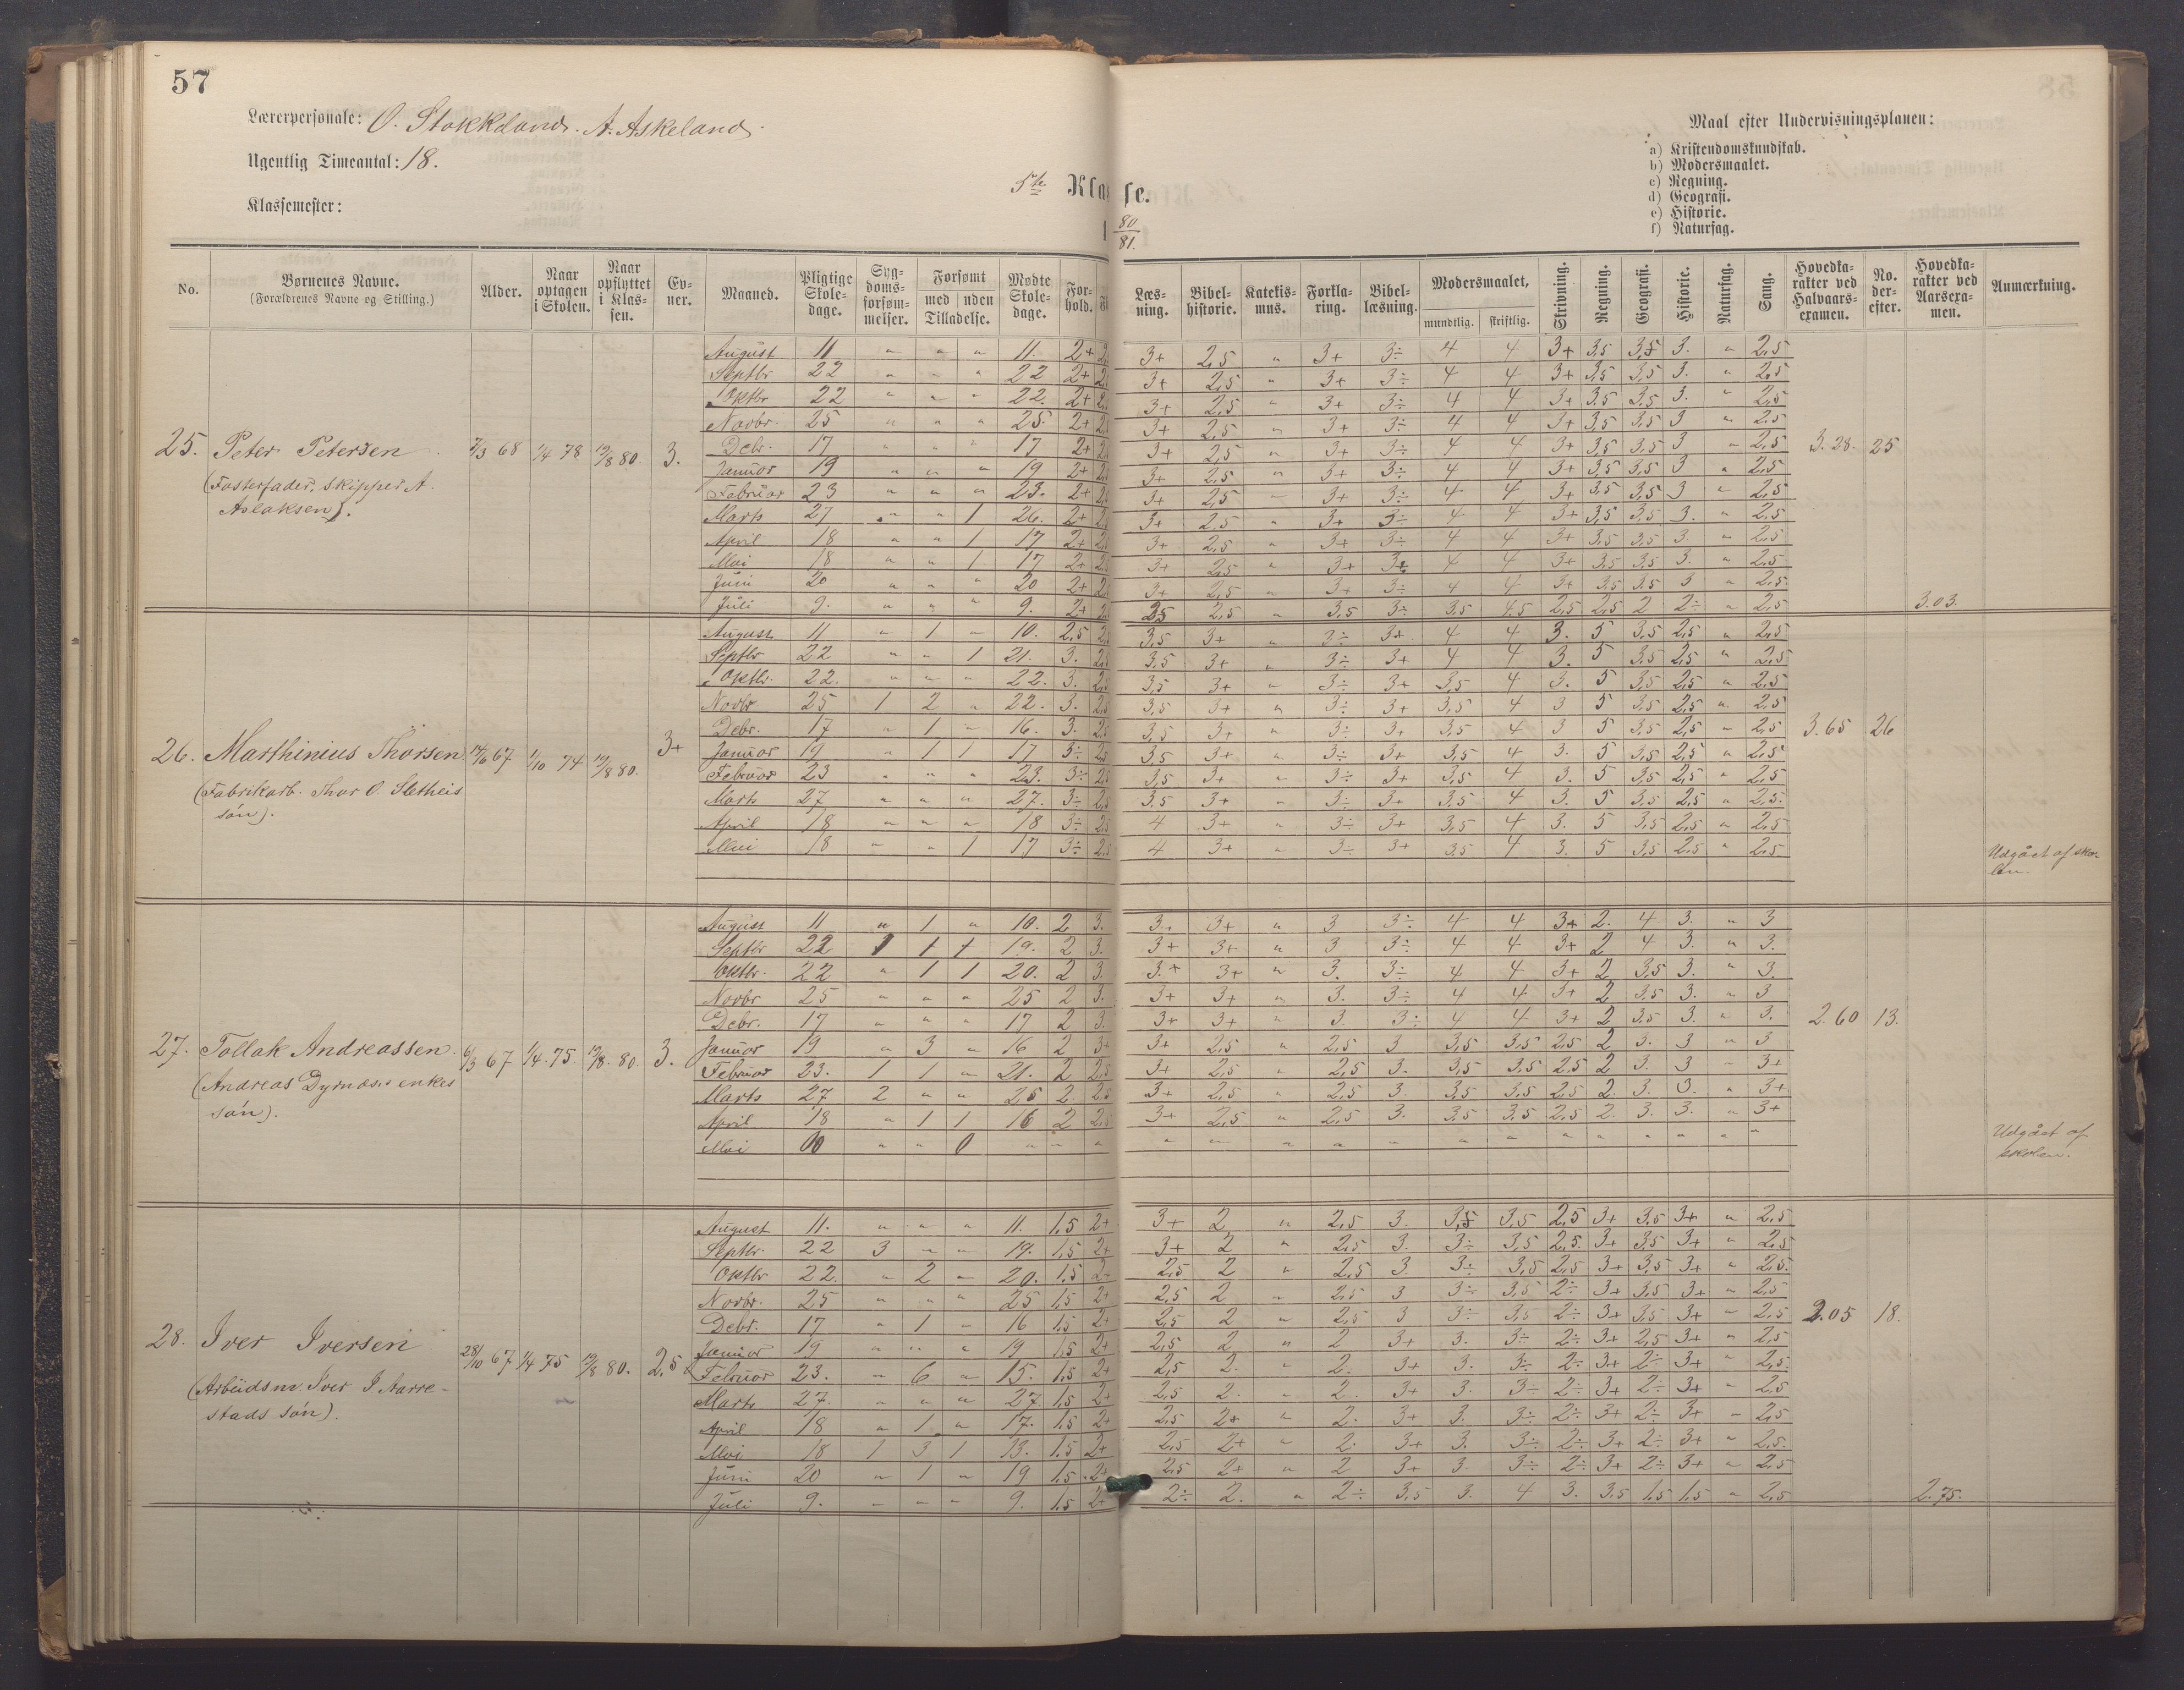 57
Lærerpersonale: O. Stokkeland. A. Askeland.
Ugentlig Timeantal: 18.
Klassemester:
5te Klasse.
1 80/81.
Maal efter Undervisningsplanen:
a) Kristendomskundskab.
b) Modersmaalet.
c) Regning.
d) Geografi.
e) Historie.
f) Naturfag.
No. Børnenes Navne. (Forældrenes Navne og Stilling.) Alder. Naar optagen i Skolen. Naar opflyttet i Klassen. Evner. Maaned. Pligtige Skoledage. Sygdomsforsømmelser. Forsømt med uden Tilladelse. Mødte Skoledage. Forhold. Læsning. Bibelhistorie. Katekismus. Forklaring. Bibellæsning. Modersmaalet, mundtlig. skriftlig. Skrivning. Regning. Geografi. Historie. Naturfag. Sang. Hovedkarakter ved Halvaarsexamen. No. derefter. Hovedkarakter ved Aarsexamen. Anmærkning.
August 11 " " " 11. 2+ 3+ 2,5 " 3+ 3÷ 4 4 3+ 3,5 3,5 3. " 2,5
Septbr 22 " " " 22 2+ 3+ 2,5 " 3+ 3÷ 4 4 3+ 3,5 3,5 3. " 2,5
Oktbr 22 " " " 22. 2+ 3+ 2,5 " 3+ 3÷ 4 4 3+ 3,5 3,5 3. " 2,5
Novbr. 25 " " " 25. 2+ 3+ 2,5 " 3+ 3÷ 4 4 3+ 3,5 3,5 3 " 2,5
25. Peter Petersen 7/3 68 1/4 78 19/8 80. 3. Debr. 17 " " " 17 2+ 3+ 2,5 " 3+ 3÷ 4 4 3+ 3,5 3,5 3 " 2,5 3.28. 25
Januar 19 " " " 19 2+ 3+ 2,5 " 3+ 3÷ 4 4 3+ 3,5 3,5 3 " 2,5
(Fosterfader, skipper A. Februar 23 " " " 23. 2+ 3+ 2,5 " 3+ 3÷ 4 4 3+ 3,5 3,5 3 " 2,5
Aslaksen). Marts 27 " " 1 26. 2+ 3+ 2,5 " 3+ 3÷ 4 4 3+ 3,5 3,5 3. " 2,5
April 18 " " 1 17 2+ 3+ 2,5 " 3+ 3÷ 4 4 3+ 3,5 3,5 3 " 2,5
Mai 18 " " 1 17 2+ 3+ 2,5 " 3+ 4 4 3+ 3,5 3,5 3. " 2,5
Juni 20 " " " 20 2+ 3+ 2,5 " 3+ 3÷ 4 4 3+ 3,5 3,5 3 " 2,5
Juli 9. " " " 9. 2+ 2,5 " 3,5 3÷ 3,5 4,5 2,5 2,5 2 2÷ " 2,5 3.03.
August 11 " 1 " 10. 2,5 3,5 3+ " 3÷ 3+ 4 4 3. 5 3,5 2,5 " 2,5
Septbr 22 " " 1 21. 3. 3,5 3+ " 3÷ 3+ 4 4 3. 5 3,5 2,5 " 2,5
Oktbr. 22. " " " 22. 3. 3,5 3+ " 3÷ 3+ 3,5 4 3. 5 3,5 2,5 " 2,5
Novbr 25 1 2 " 22. 3. 3,5 3+ " 3÷ 3+ 3,5 4 3 5 3,5 2,5 " 2,5
Debr. 17 " 1 " 16. 3. 3,5 3+ " 3÷ 3+ 3,5 4 3 5 3,5 2,5 " 2,5 3.65 26
26. Marthinius Thorsen 67 1/10 74 19/8 80. 3+ Januar 19 " 1 1 17 3÷ 3,5 3+ " 3÷ 3+ 3,5 4 3. 5 3,5 2,5 " 2,5
(Fabrikarb. Thor O. Sletheis Februar 23 " " " 23. 3÷ 3,5 3+ " 3÷ 3+ 3,5 4 3. 5 3,5 2,5 " 2,5
søn). Marts 27 " " " 27. 3÷ 3,5 3+ " 3÷ 3+ 3,5 4 3. 5 3,5 2,5 " 2,5
April 18 " " " 18 3÷ 4 3+ " 3÷ 3+ 3,5 4 3. 5 3,5 2,5 " 2,5
Mai 18 " " 1 17 3÷ 4 3+ " 3÷ 3+ 3,5 4 3. 5 3,5 2,5 " 2,5 Udgået af skolen.
August 11 " 1 " 10. 2 3. 3+ " 3 3÷ 4 4 3+ 2. 4 3. " 3
Septbr 22 1 1 1 19. 2 3. 3+ 3+ " 3 3÷ 4 4 3+ 2 4 3. " 3.
Oktbr. 22 " 1 1 20. 2 3. 3+ 3+ " 3. 3÷ 4 4 3+ 2 3,5 3. " 3.
Novbr 25 " " " 25 2 3. 3+ 3+ " 3. 3÷ 4 4 3+ 2 3,5 3. " 3
Debr. 17 " " " 17 2 3. 3+ 3+ " 3. 3÷ 4 4 3+ 2 3,5 3. " 3. 2.60 13.
27. Tollak Andreassen. 6/3 67 1/4. 75. 19/8. 80. 3. Januar 19 " 3 " 16 2 3+ 3+ 2,5 " 2,5 3 3,5 3,5 2,5 2 3. 3 " 3
(Andreas Dyrnæs's enkes Februar 23. 1 1 " 21. 2 2,5 3+ 2,5 " 2,5 3. 3,5 3,5 2,5 2 3. 3 " 3+
søn). Marts 27 2 " " 25 2 2,5 3+ 2,5 " 2,5 3. 3,5 3,5 2,5 2. 3. 3. " 3+
April 18 " 1 1 16 2 2,5 3+ 2,5 " 2,5 3. 3,5 3,5 2,5 2. 3. 3. " 3+
Mai " " 0 " " " " " " " " " " " " " " " " Udgået af skolen.
August 11. " " " 11. 1,5 2+ 3+ 2 " 2,5 3. 3,5 3,5 2,5 3+ 3,5 3+ " 2,5
Septbr. 22 3 " " 19. 1,5 2+ 3+ 2 " 2,5 3. 3÷ 3,5 2,5. 3+ 3,5 3+ " 2,5
Oktbr 22. " 2 " 20. 1,5 2+ 2,5 2 " 2,5 3. 3÷ 3,5 2,5 3+ 3,5 3+ " 2,5.
Novbr. 25 " " " 25 1,5 2+ 2,5 2 " 2,5 3 3÷ 3,5 2÷ 3+ 3,5 3+ " 2,5
Debr. 17 " 1 " 16 1,5 2+ 2,5 2 " 2,5 3 3÷ 3,5 2÷ 3+ 3,5 3+ " 2,5 2.05 18.
28. Iver Iversen 28/10 67 1/4 75 19/8 80. 2,5 Januar 19 " " " 19 1,5 2+ 2,5 2 " 2 3+ 3. 3÷ 2÷ 3+ 2,5 3+ " 2,5
Februar 23. " 6 " 15. 1,5 2+ 2,5 2. " 2. 3+ 3. 3÷ 2÷ 3+ 2÷ 3+ " 2,5
(Arbeidsm. Iver I. Aarre- Marts 27. " " " 27. 1,5 2+ 2,5 2. " 2. 3+ 3. 3÷ 2÷ 3+ 2÷ 3+ " 2,5
stads søn). April 18 " 1 " 17. 1,5 2+ 2,5 2+ " 2. 3+ 3. 3÷ 2÷ 3+ 2÷ 3+ " 2,5
Mai 18 1 3 1 13. 1,5 2+ 2,5 2+ " 2. 3+ 3. 3÷ 2÷ 3+ 2÷ 3+ " 2,5.
Juni 20 " 1 " 19 1,5 2+ 2,5 2+ " 2 3+ 3 3÷ 2÷ 3+ 2÷ 3+ " 2,5
Juli 9. " " " 9. 1,5 2+ 2÷ 2. " 2÷ 3,5 3. 4 3. 3,5 1,5 1,5 " 2,5 2.75.